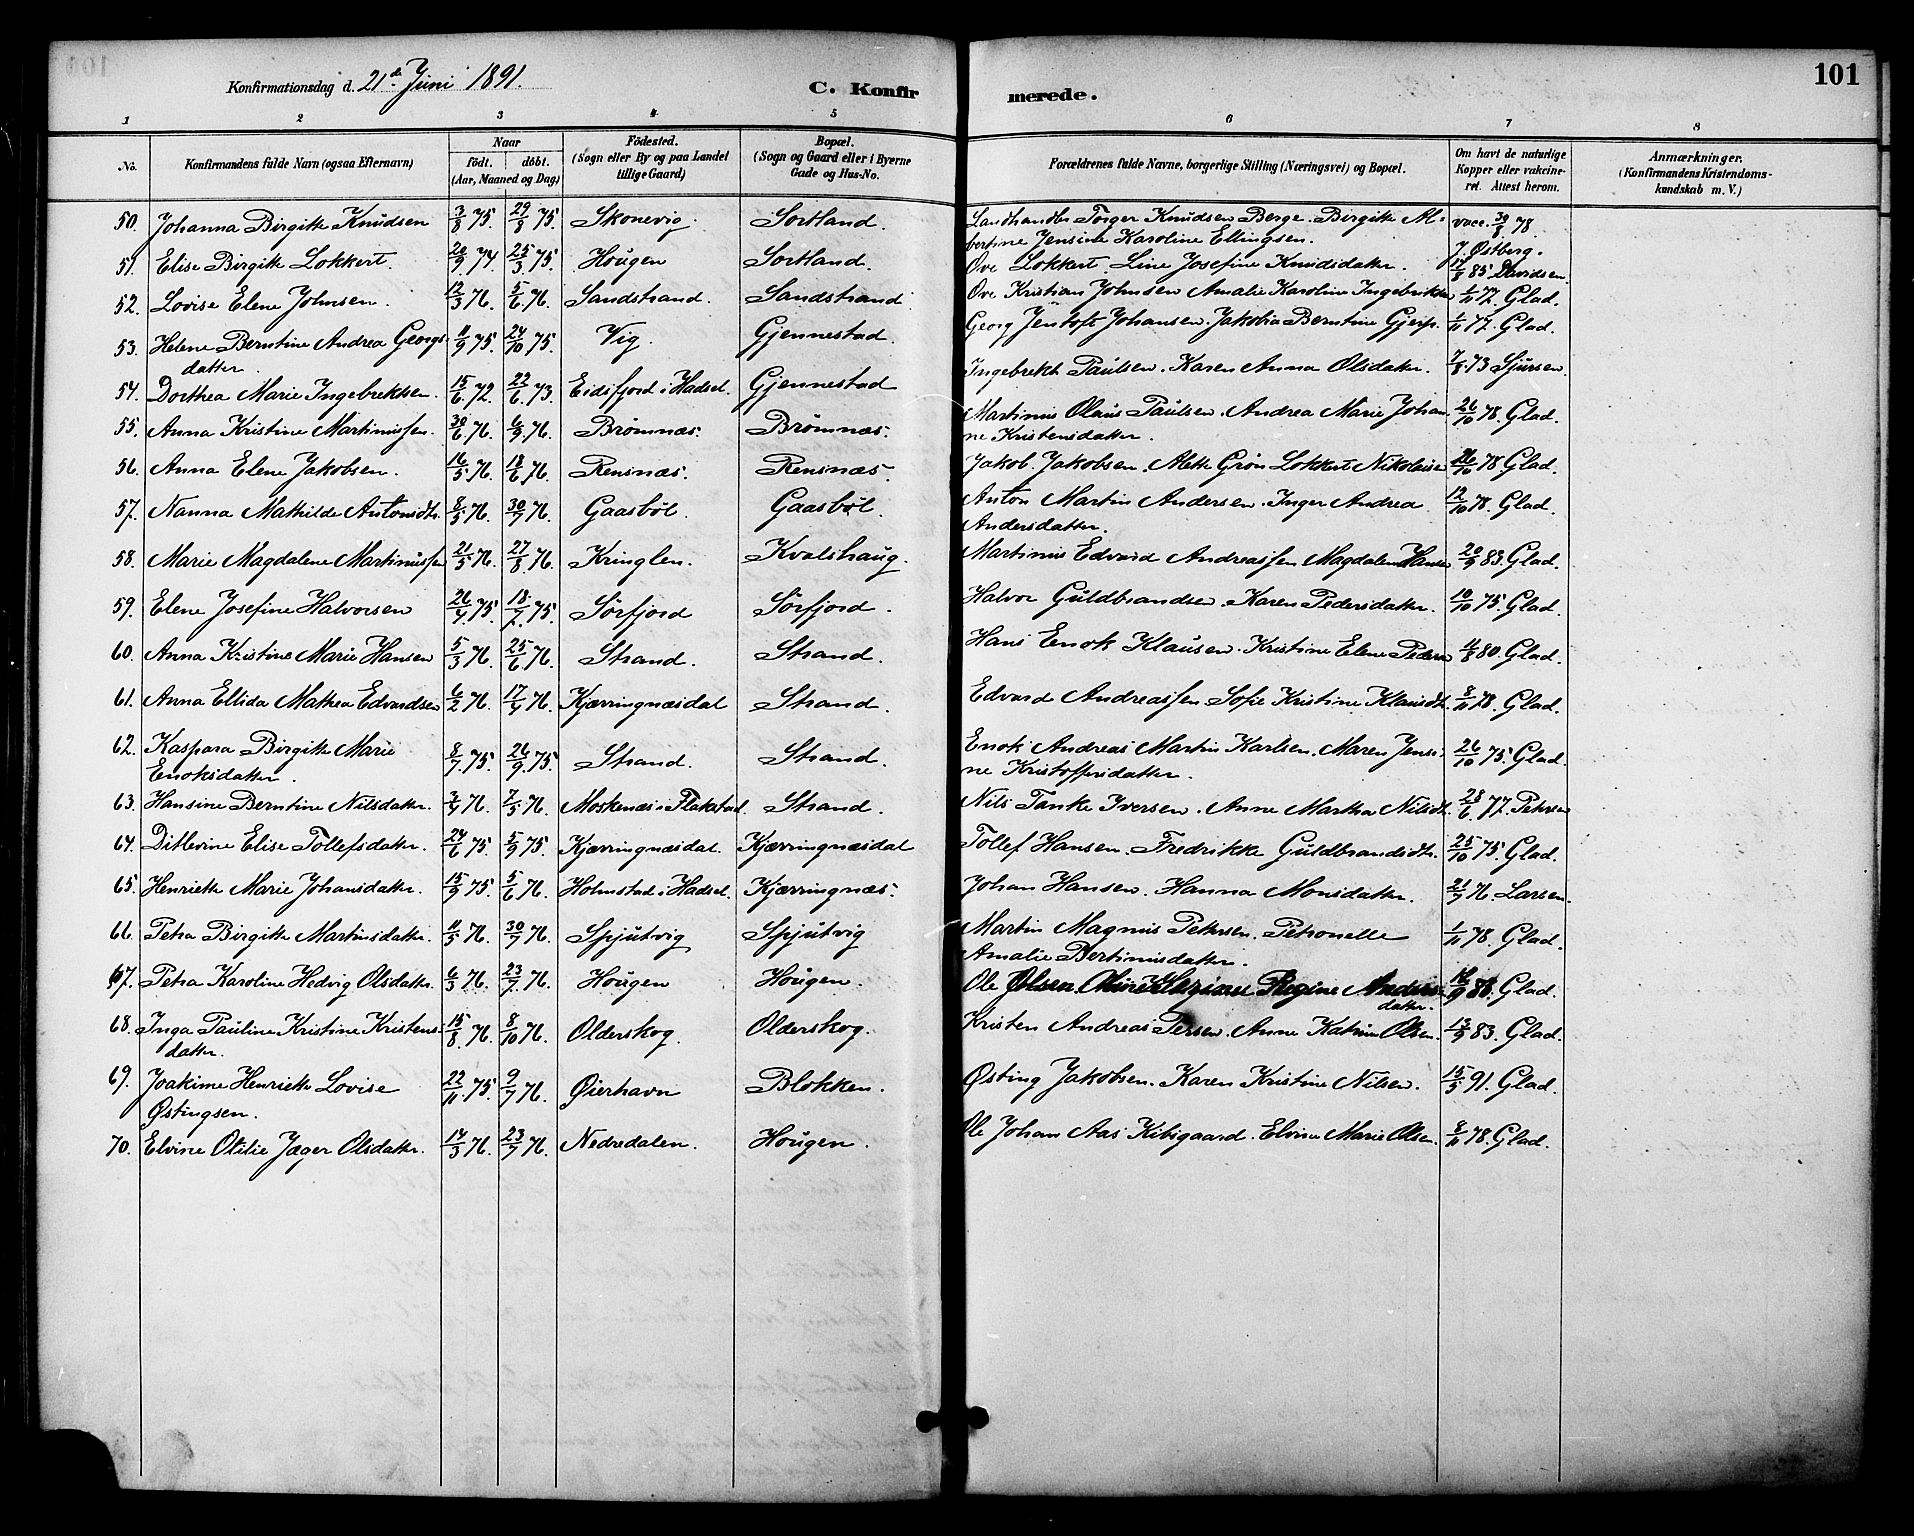 101
Konfirmationsdag d. 21de Juni 1891.
C. Konfirmerede.
1 2 3 4 5 6 7 8
No. Konfirmandens fulde Navn (ogsaa Efternavn) Naar födt. döbt. (Aar, Maaned og Dag) Födested. (Sogn eller By og paa Landet tillige Gaard) Bopæl. (Sogn og Gaard eller i Byerne Gade og Hus-No. Forældrenes fulde Navne, borgerlige Stilling (Næringsvei) og Bopæl. Om havt de naturlige Kopper eller vakcineret. Attest herom. Anmærkninger. (Konfirmandens Kristendomskundskab m. V.)
50. Johanna Birgitte Knudsen 3/8 75. 29/8 75. Skonevig. Sortland. Landhandler Torger Knudsen Berge. Birgitte Al-
bertine Jensine Karoline Ellingsen. vacc. 30/8 78. J. Østberg.
51. Elise Birgitte Lokkert. 20/9 74. 25/3 75. Hougen Sortland. Ove Lokkert. Line Josefine Knudsdatter. 17/8 85 Davidsen
52. Lovise Elene Johnsen. 12/3 76. 5/6 76. Sandstrand. Sandstrand Ove Kristian Johnsen Amalie Karoline Ingebriktsen 1/11 77. Glad.
53. Helene Berntine Andrea Georgs-
datter. 11/9 75. 24/10 75. Vig. Gjennestad. Georg Jentoft Johansen. Jakobia Berntine Gjerp. 1/11 77. Glad.
54. Dorthea Marie Ingebrektsen. 15/6 72. 22/6 73. Eidsfjord i Hadsel. Gjennestad Ingebrekt Paulsen. Karen Anna Olsdatter. 7/8 73 Sjursen.
55. Anna Kristine Martinussen. 30/6 76. 6/9 76. Brømnæs. Brømnæs. Martinus Olaus Paulsen. Andrea Marie Johan-
ne Kristensdatter. 26/10 78. Glad.
56. Anna Elene Jakobsen. 16/5 76. 18/6 76. Rensnæs. Rensnæs. Jakob Jakobsen. Alette Grøn Lokkert Nikolaisen 26/10 78. Glad.
57. Nanna Mathilde Antonsdtr. 8/5 76. 30/7 76. Gaasbøl. Gaasbøl. Anton Martin Andersen. Inger Andrea
Andersdatter. 12/10 78. Glad.
58. Marie Magdalene Martinussen 21/5 76. 27/8 76. Kringlen. Kvalshaug. Martinus Edvard Andreassen Magdalena Hansen 20/9 83. Glad.
59. Elene Josefine Halvorsen 26/4 75. 18/7 75. Sørfjord Sørfjord. Halvor Guldbrandsen. Karen Pedersdatter. 10/10 75. Glad.
60. Anna Kristine Marie Hansen 5/3 76. 25/6 76. Strand. Strand. Hans Enok Klausen. Kristine Elene Pedersen 4/8 80. Glad.
61. Anna Ellida Mathea Edvardsen 6/2 76. 17/4 76. Kjærringnæsdal Strand. Edvard Andreassen Sofie Kristine Klausdtr. 8/11 78. Glad.
62. Kaspara Birgitte Marie
Enoksdatter. 8/7 75. 26/9 75. Strand. Strand. Enok Andreas Martin Karlsen. Maren Jensi-
ne Kristoffersdatter. 26/10 75. Glad.
63. Hansine Berntine Nilsdatter. 3/4 76. 7/5 76. Moskenæs i Flakstad. Strand. Nils Tanke Iversen. Anne Martha Nilsdtr. 28/6 77. Petersen
64. Ditlevine Elise Tollefsdatter. 24/6 75. 5/9 75. Kjærringnæsdal. Kjærringnæsdal Tollef Hansen. Fredrikke Guldbrandsdtr. 25/10 75. Glad.
65. Henriette Marie Johansdatter. 15/9 75. 5/6 76. Holmstad i Hadsel. Kjærringnæs. Johan Hansen. Hanna Monsdatter. 21/7 76. Larsen.
66. Petra Birgitte Martinsdatter. 11/5 76. 30/7 76. Spjutvig Spjutvig Martin Magnus Petersen. Petronelle
Amalie Bertinusdatter. 1/11 78. Glad.
67. Petra Karoline Hedvig Olsdatter. 6/3 76. 23/7 76. Hougen Hougen. Ole Olsen. Regine Anders-
datter. 16/9 88. Glad.
68. Inga Pauline Kristine Kristens-
datter. 15/8 76. 8/10 76. Olderskog. Olderskog. Kristen Andreas Persen. Anne Katrine Olsen. 13/9 83. Glad.
69. Joakime Henriette Lovise
Østingsen. 22/11 75. 9/7 76. Øierhavn Blokken. Østing Jakobsen. Karen Kristine Nilsen. 15/5 91. Glad.
70. Elvine Otilie Jæger Olsdatter. 14/3 76. 23/7 76. Nedredalen. Hougen. Ole Johan Aas Kibsgaard. Elvine Marie Olsen. 8/11 78. Glad.